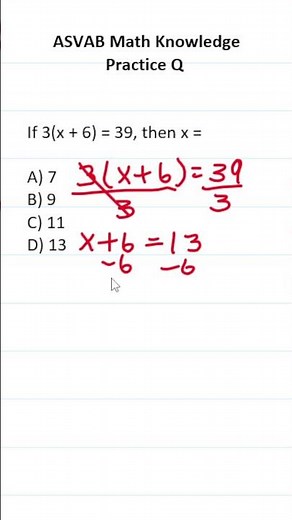 ASVAB Math Knowledge
Practice Q
If 3(x + 6) = 39, then x =
A) 7
B) 9
C) 11
D) 13
3(x+6) = 39
3 3
x+6 = 13
-6 -6